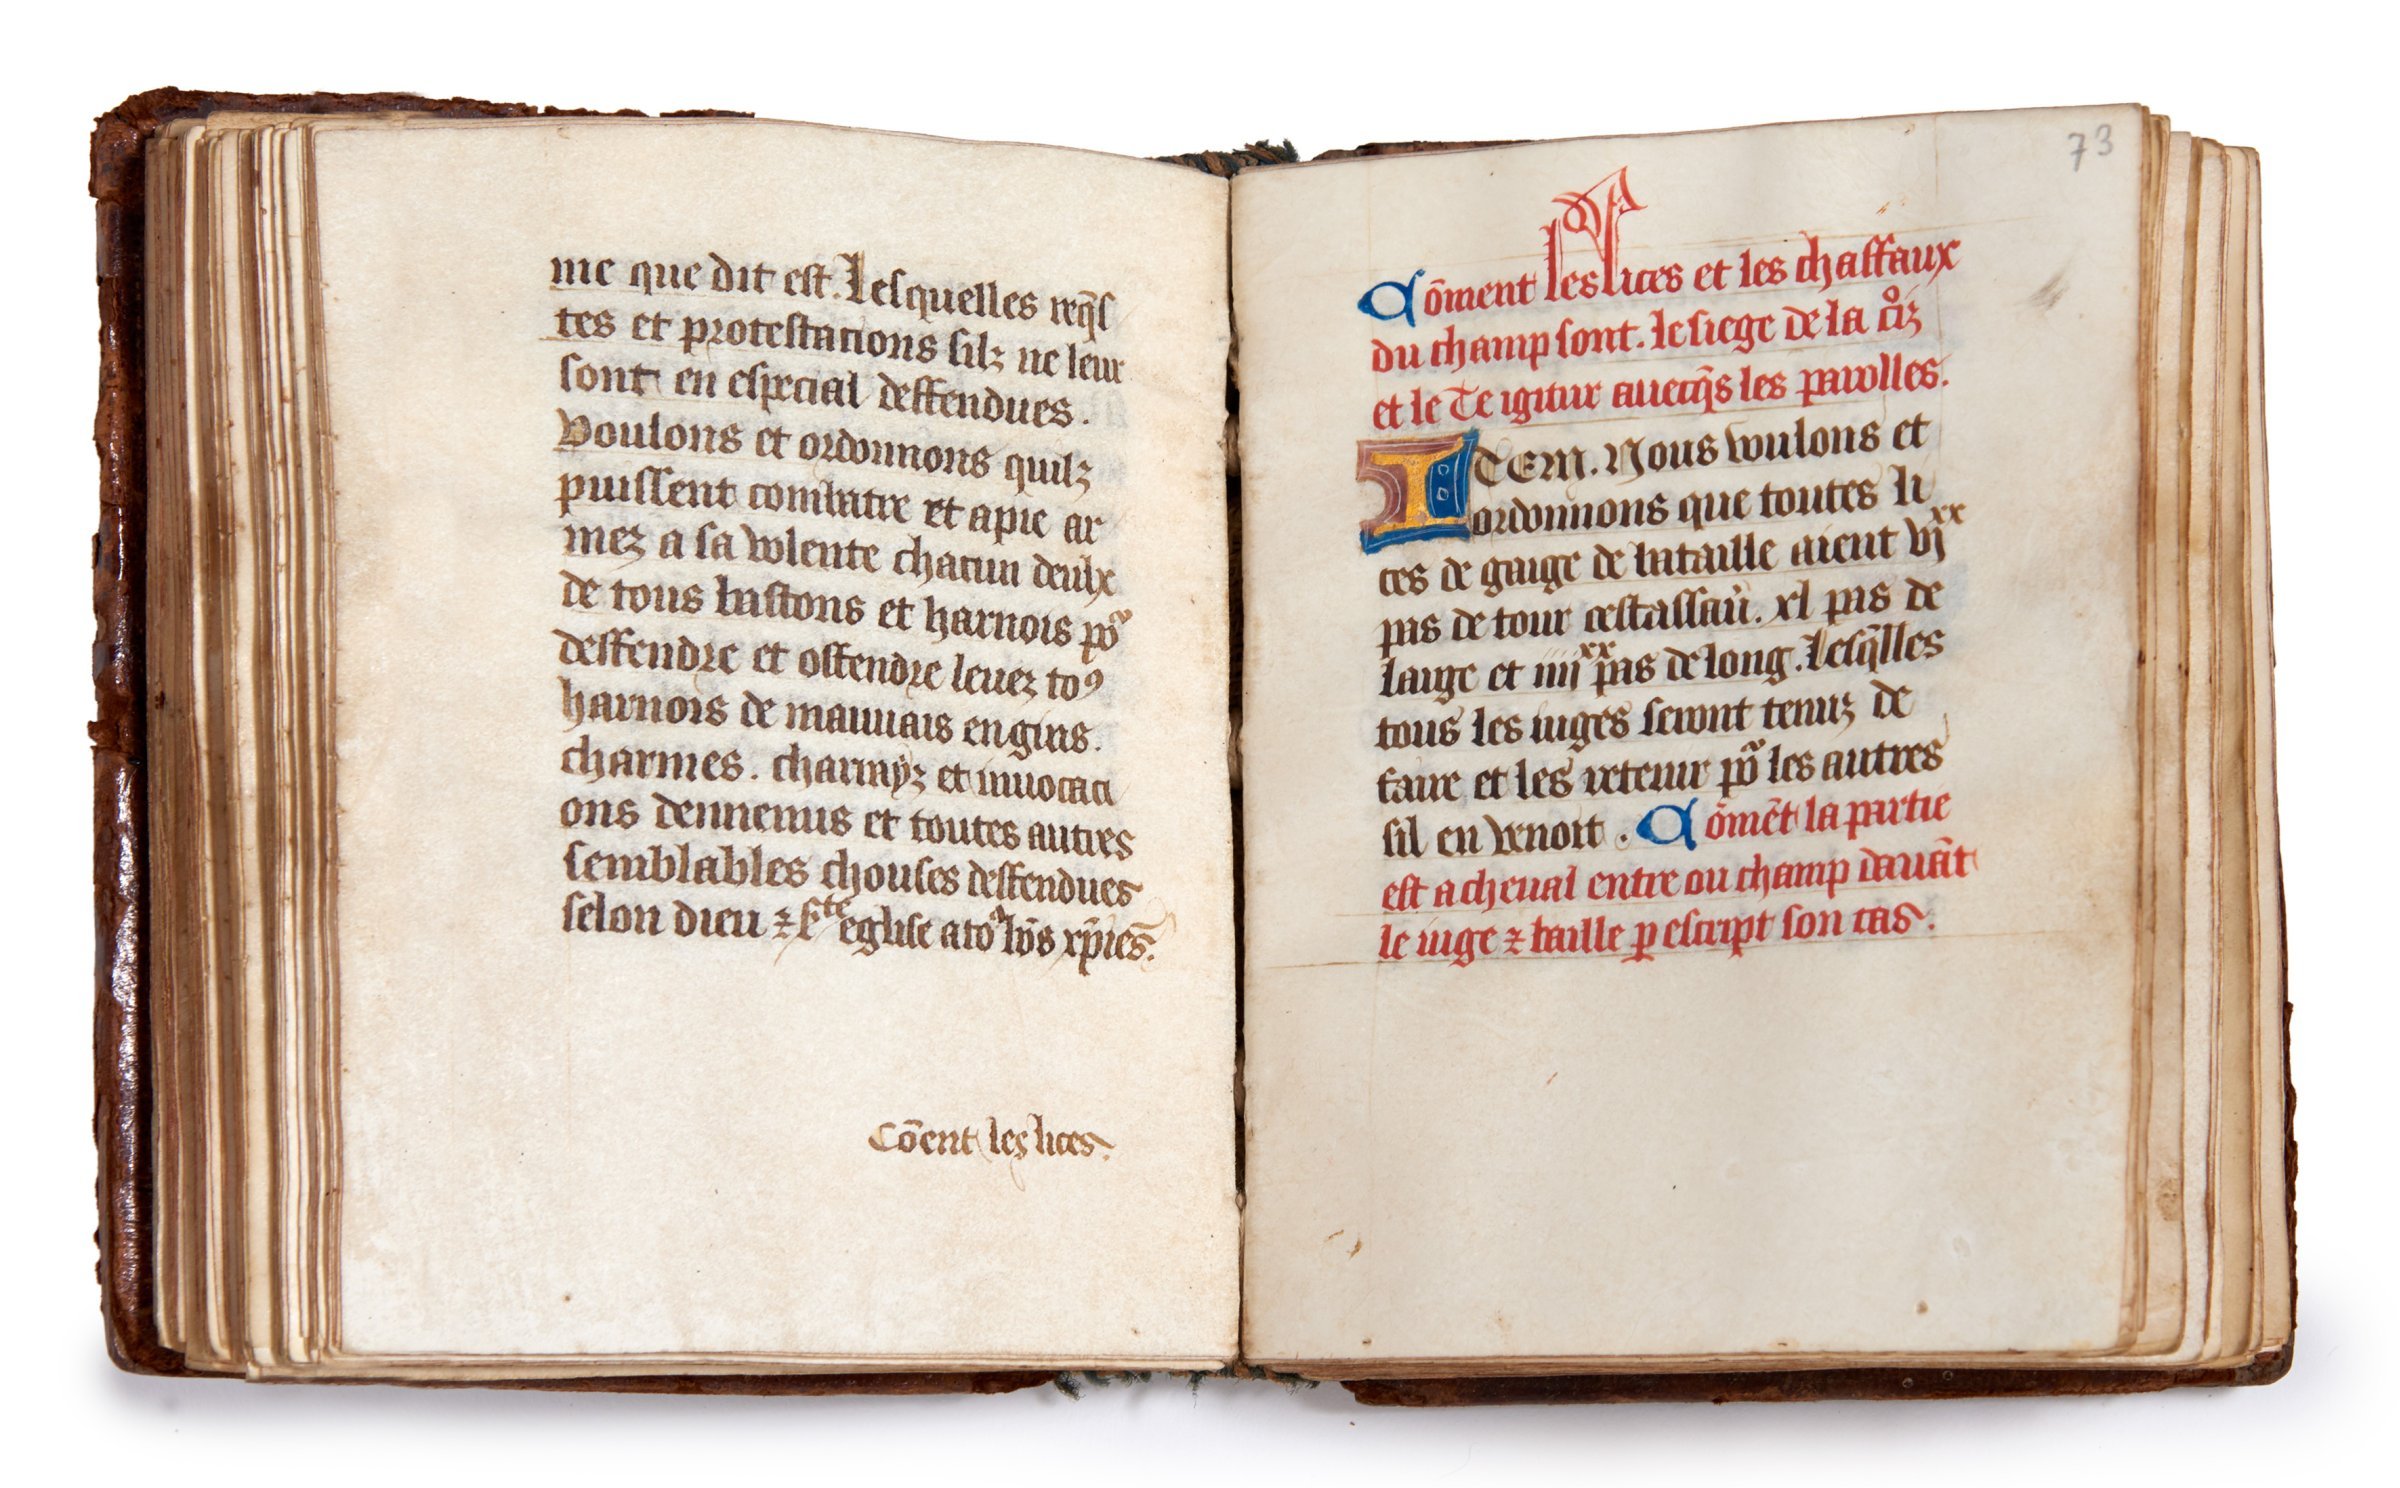 me que dit est. Lesquelles reqs̄
tes et protestacions silz ne leur
sont en especial deffendues.
Voulons et ordonnons quilz
puissent combatre et apie ar
mez a sa volente chacun deulx
de tous bastons et harnois po᷑
deffendre et offendre leuez toꝰ
harnois de mauuais engins.
charmes. charroyz et inuocaci
ons dennemis et toutes autres
semblables chouses deffendues
selon dieu ⁊ sᵗᵉ eglise a to᷑ bōs xp̄iēs.
Cōent les lices.
73
Cōment les lices et les chaffaux
du champ sont. le siege de la c͛oiz
et le Te igitur auecq̄s les parolles.
ITEM. Nous voulons et
ordonnons que toutes li
ces de gaige de bataille aient vjˣˣ
pas de tour cestassau͛. xl pas de
large et iiijˣˣ pas de long. Lesq̄lles
tous les iuges seront tenuz de
faire et les retenir po᷑ les autres
sil en venoit. Cōmēt la partie
est a cheual entre ou champ dauāt
le iuge ⁊ baille ꝑ escript son cas.